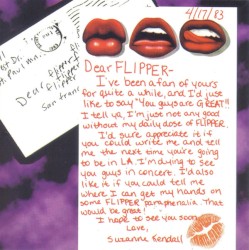 4/17/83
Dear FLIPPER-
I've been a fan of yours
for quite a while, and I'd just
like to say "You guys are GREAT!!"
I tell ya, I'm just not any good
without my daily dose of FLIPPER.
I'd sure appreciate it if
you could write me and tell
me the next time you're going
to be in L.A. I'm dying to see
you guys in concert. I'd also
like it if you could tell me
where I can get my hands on
some FLIPPER paraphenalia. That
would be great!
I hope to see you soon!
Love,
Suzanne Kendall
Dear
Flipper
San Fran